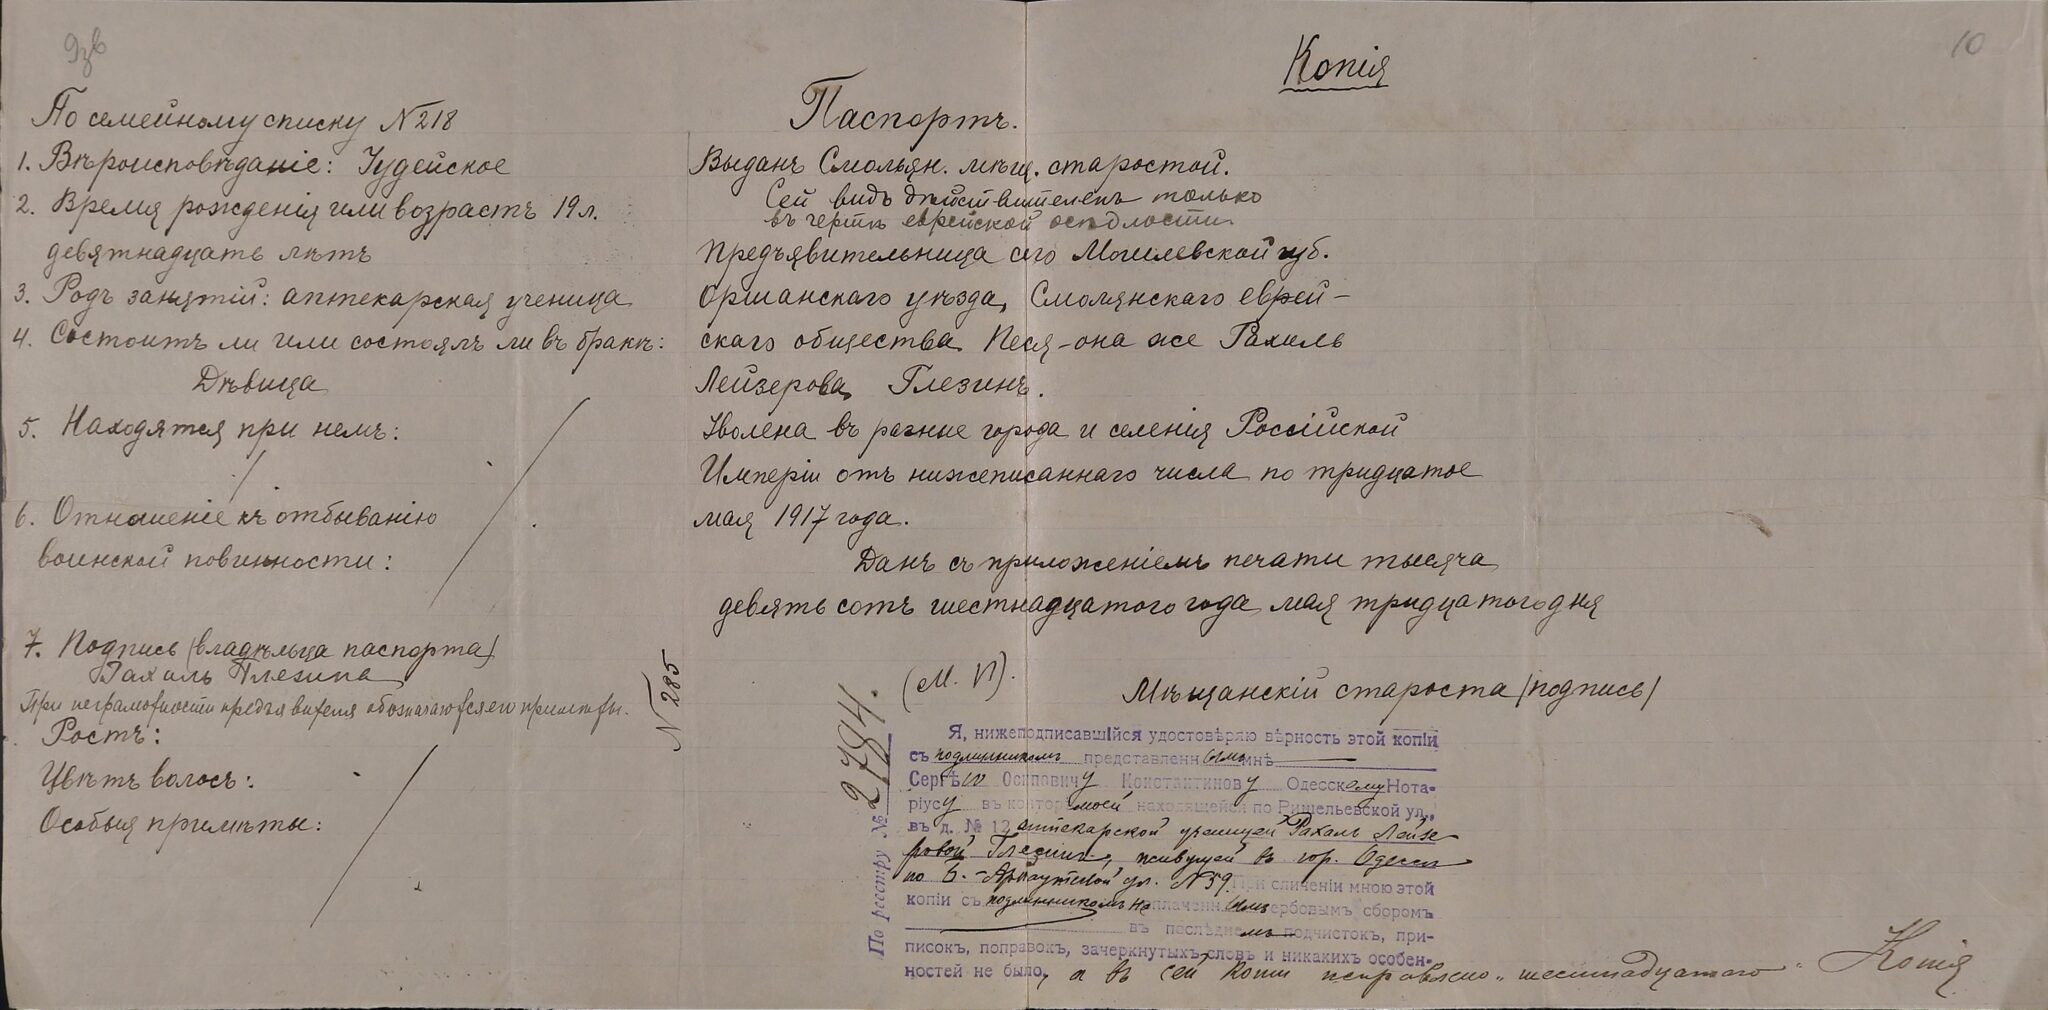 Копія
10
По семейному списку № 218
1. Вѣроисповѣданіе: Іудейское
2. Время рожденія или возрастъ 19 л.
девятнадцать лѣтъ
3. Родъ занятій: аптекарская ученица
4. Состоитъ ли или состоялъ ли въ бракѣ:
Дѣвица
5. Находятся при немъ:
6. Отношеніе къ отбыванію
воинской повинности:
7. Подпись (владѣльца паспорта)
Рахиль Глезина
При неграмотности предъявителя обозначаются его примѣты.
Ростъ:
Цвѣтъ волосъ:
Особыя примѣты:
№ 285
Паспортъ.
Выданъ Смольян. мѣщ. старостой.
Сей видъ дѣйствителенъ только
въ чертѣ еврейской осѣдлости
Предъявительница сего Могилевской губ.
Оршанскаго уѣзда, Смолянскаго еврей-
скаго общества Песя-она же Рахиль
Лейзерова Глезинъ.
Уволена въ разные города и селенія Россійской
Имперіи отъ нижеписаннаго числа по тридцатое
мая 1917 года.
Данъ съ приложеніемъ печати тысяча
девятьсотъ шестнадцатого года мая тридцатого дня
(М. П).
Мѣщанскій староста (подпись)
По реестру № 2794.
Я, нижеподписавшійся удостовѣряю вѣрность этой копіи
съ подлинникомъ представленнымъ мнѣ
Сергѣю Осиповичу Константинову Одесскому Нота-
ріусу въ конторѣ моей находящейся по Ришельевской ул.,
въ д. № 12 аптекарской ученицей Рахиль Лейзе
ровой Глезинъ, живущей въ гор. Одессѣ
по Б.-Арнаутской ул. № 59 При сличеніи мною этой
копіи съ подлинникомъ не оплаченнымъ гербовымъ сборомъ
въ послѣднемъ подчистокъ, при-
писокъ, поправокъ, зачеркнутыхъ словъ и никакихъ особен-
ностей не было, а въ сей копіи исправлено „шестнадцатаго"
Копія